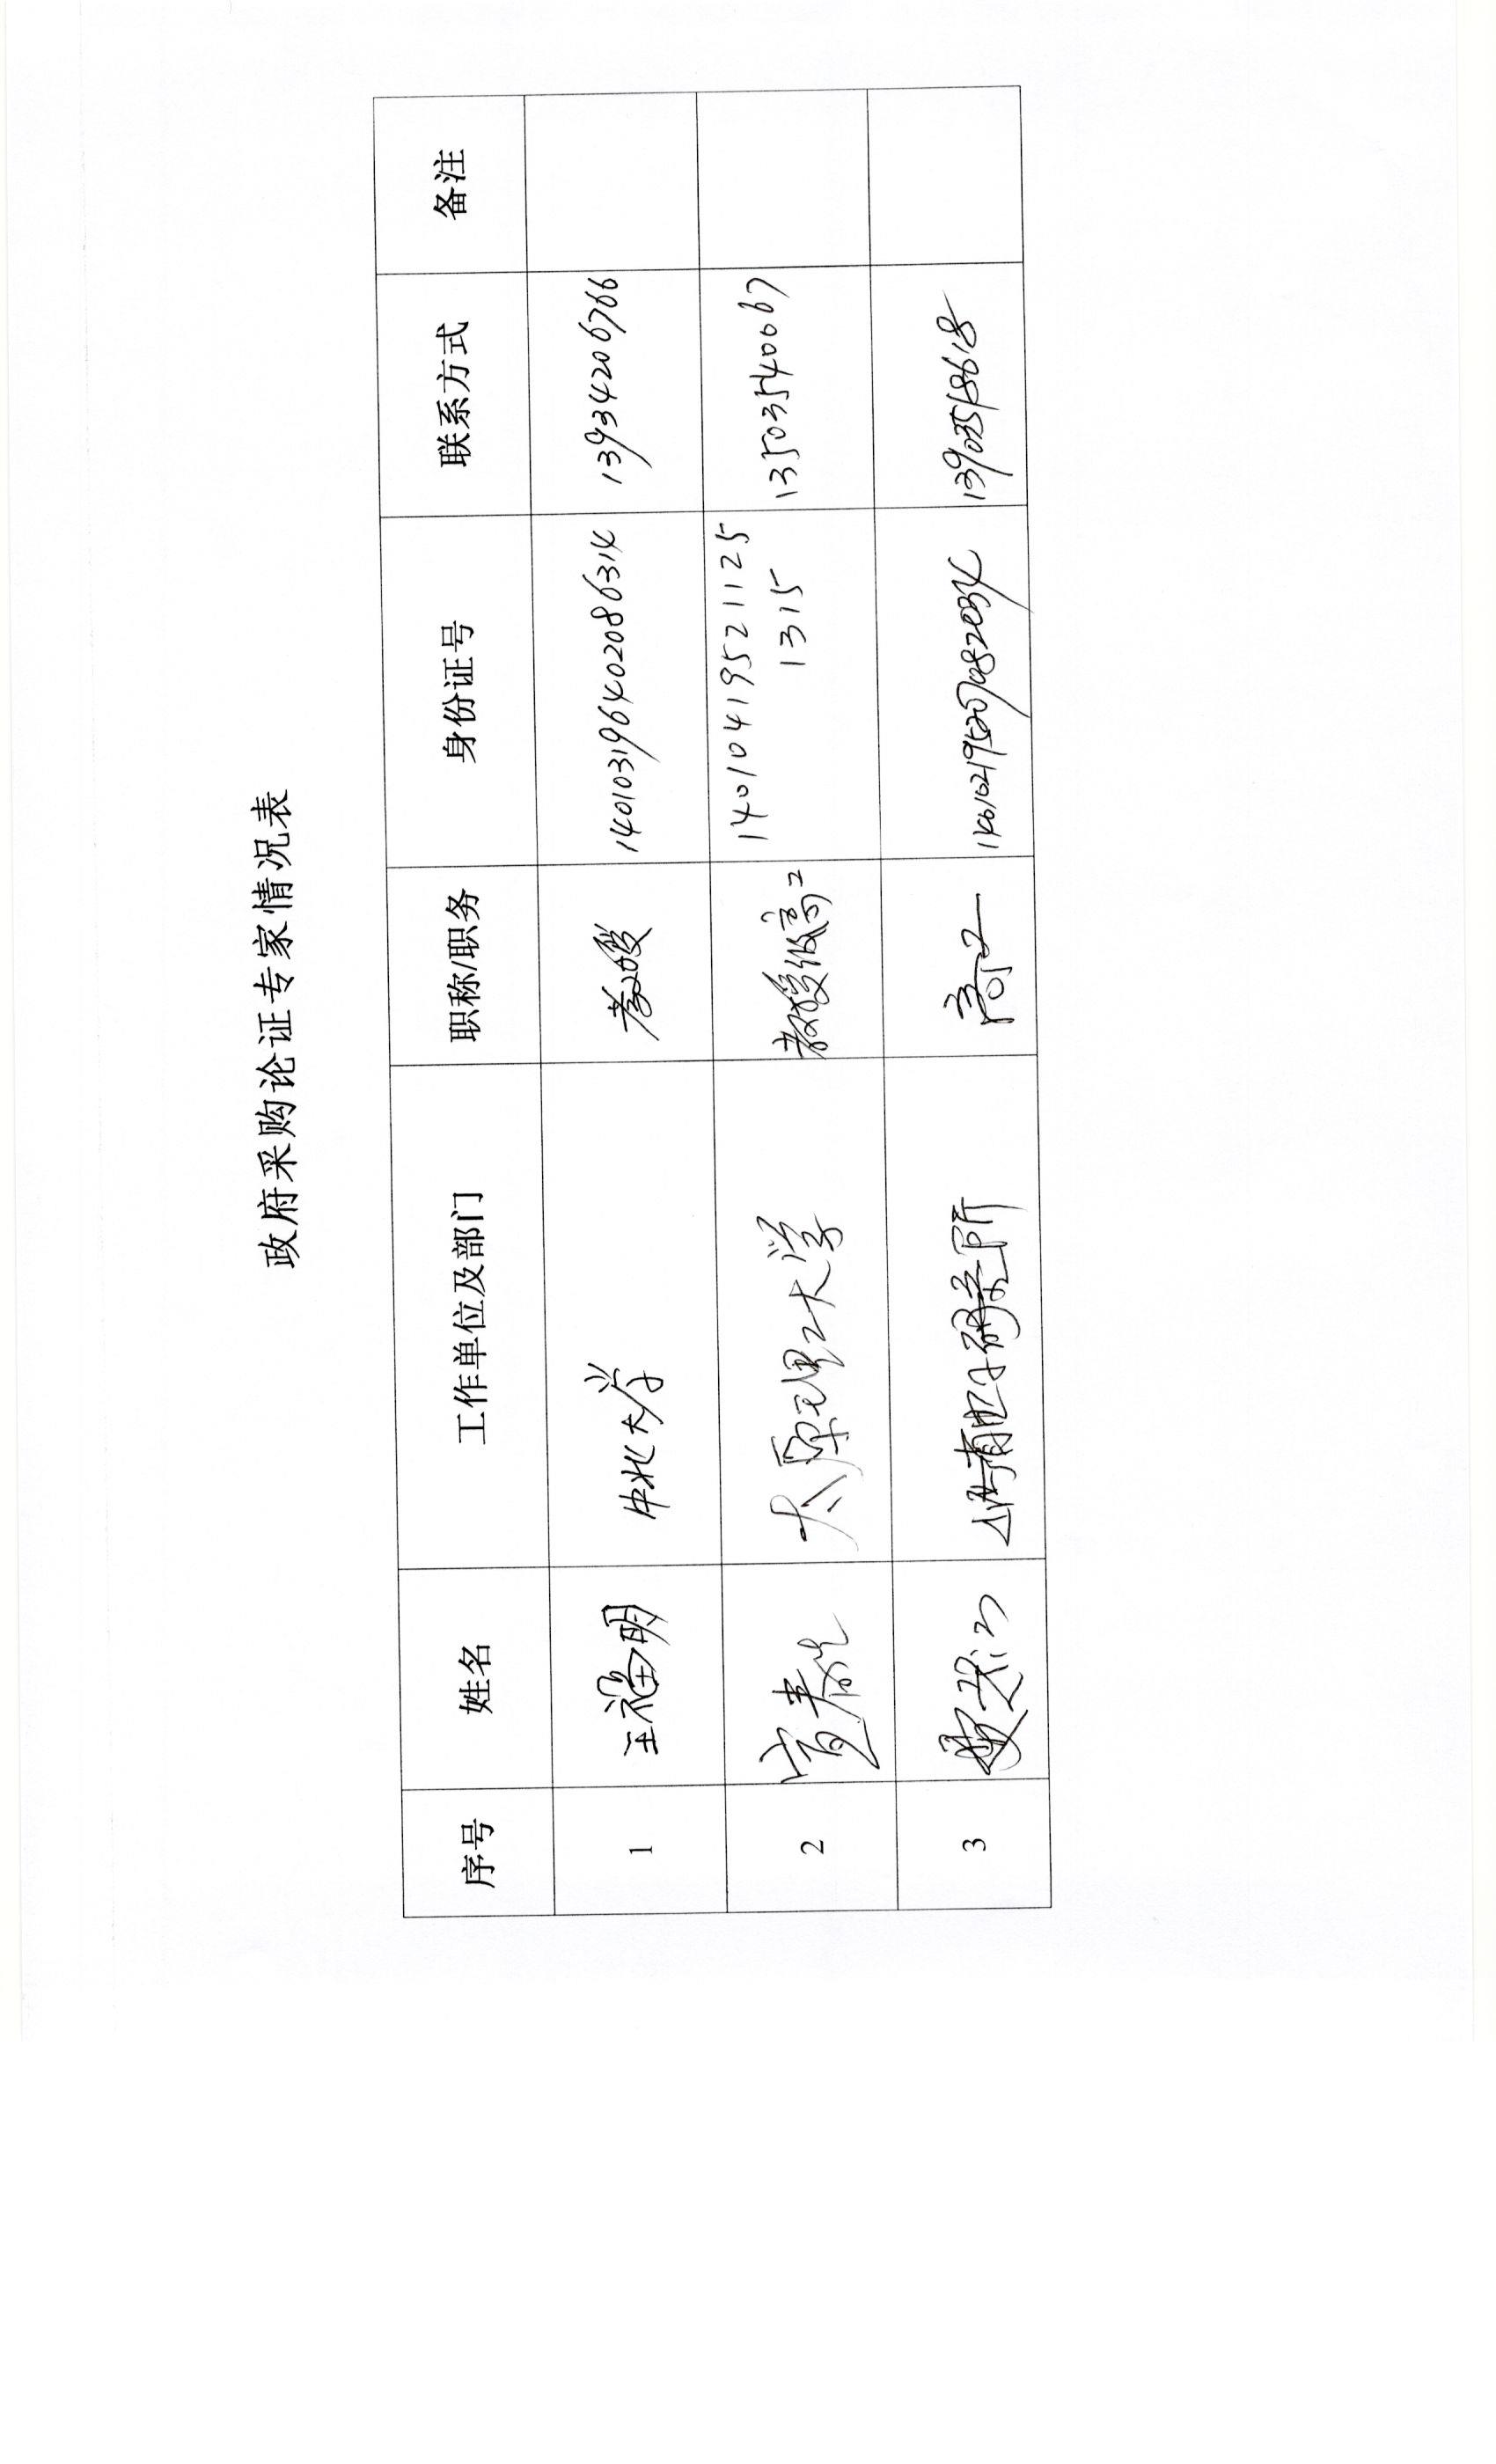 政府采购论证专家情况表
序号 姓名 工作单位及部门 职称/职务 身份证号 联系方式 备注
1 王福明 中北大学 教授 140103196402086314 13934206766
2 太原理工大学 教授级高工 14010419521125 13503540067
1315
3 研究所 高工